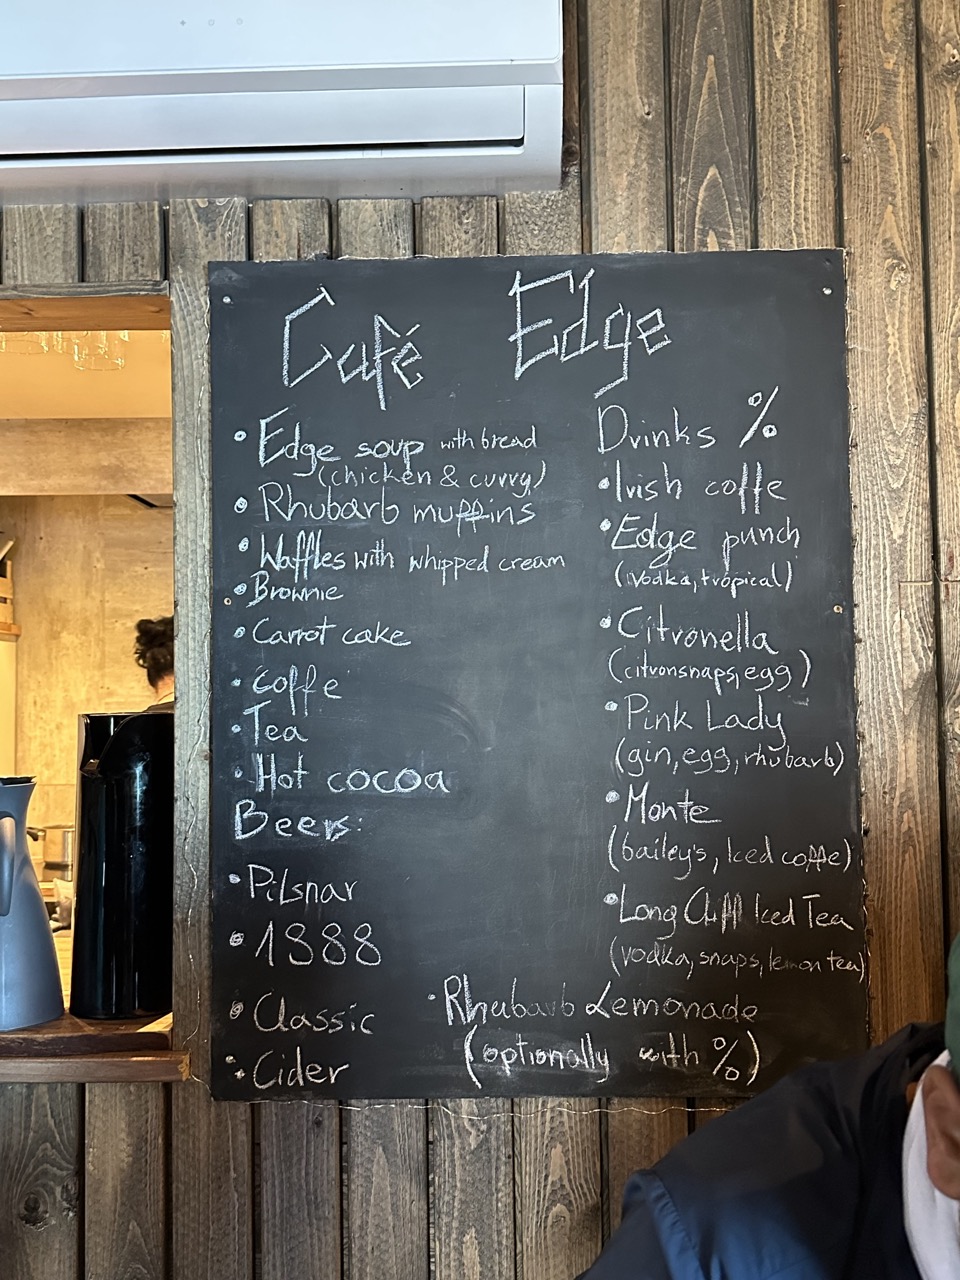 Café Edge
• Edge soup with bread
(chicken & curry)
• Rhubarb muffins
• Waffles with whipped cream
• Brownie
• Carrot cake
• Coffe
• Tea
• Hot cocoa
Beers:
• Pilsnar
• 1888
• Classic
• Cider
Drinks %
• Irish coffe
• Edge punch
(vodka, tropical)
• Citronella
(citronsnaps, egg)
• Pink Lady
(gin, egg, rhubarb)
• Monte
(bailey's, Iced coffe)
• Long Cliff Iced Tea
(vodka, snaps, lemon tea)
• Rhubarb Lemonade
(optionally with %)